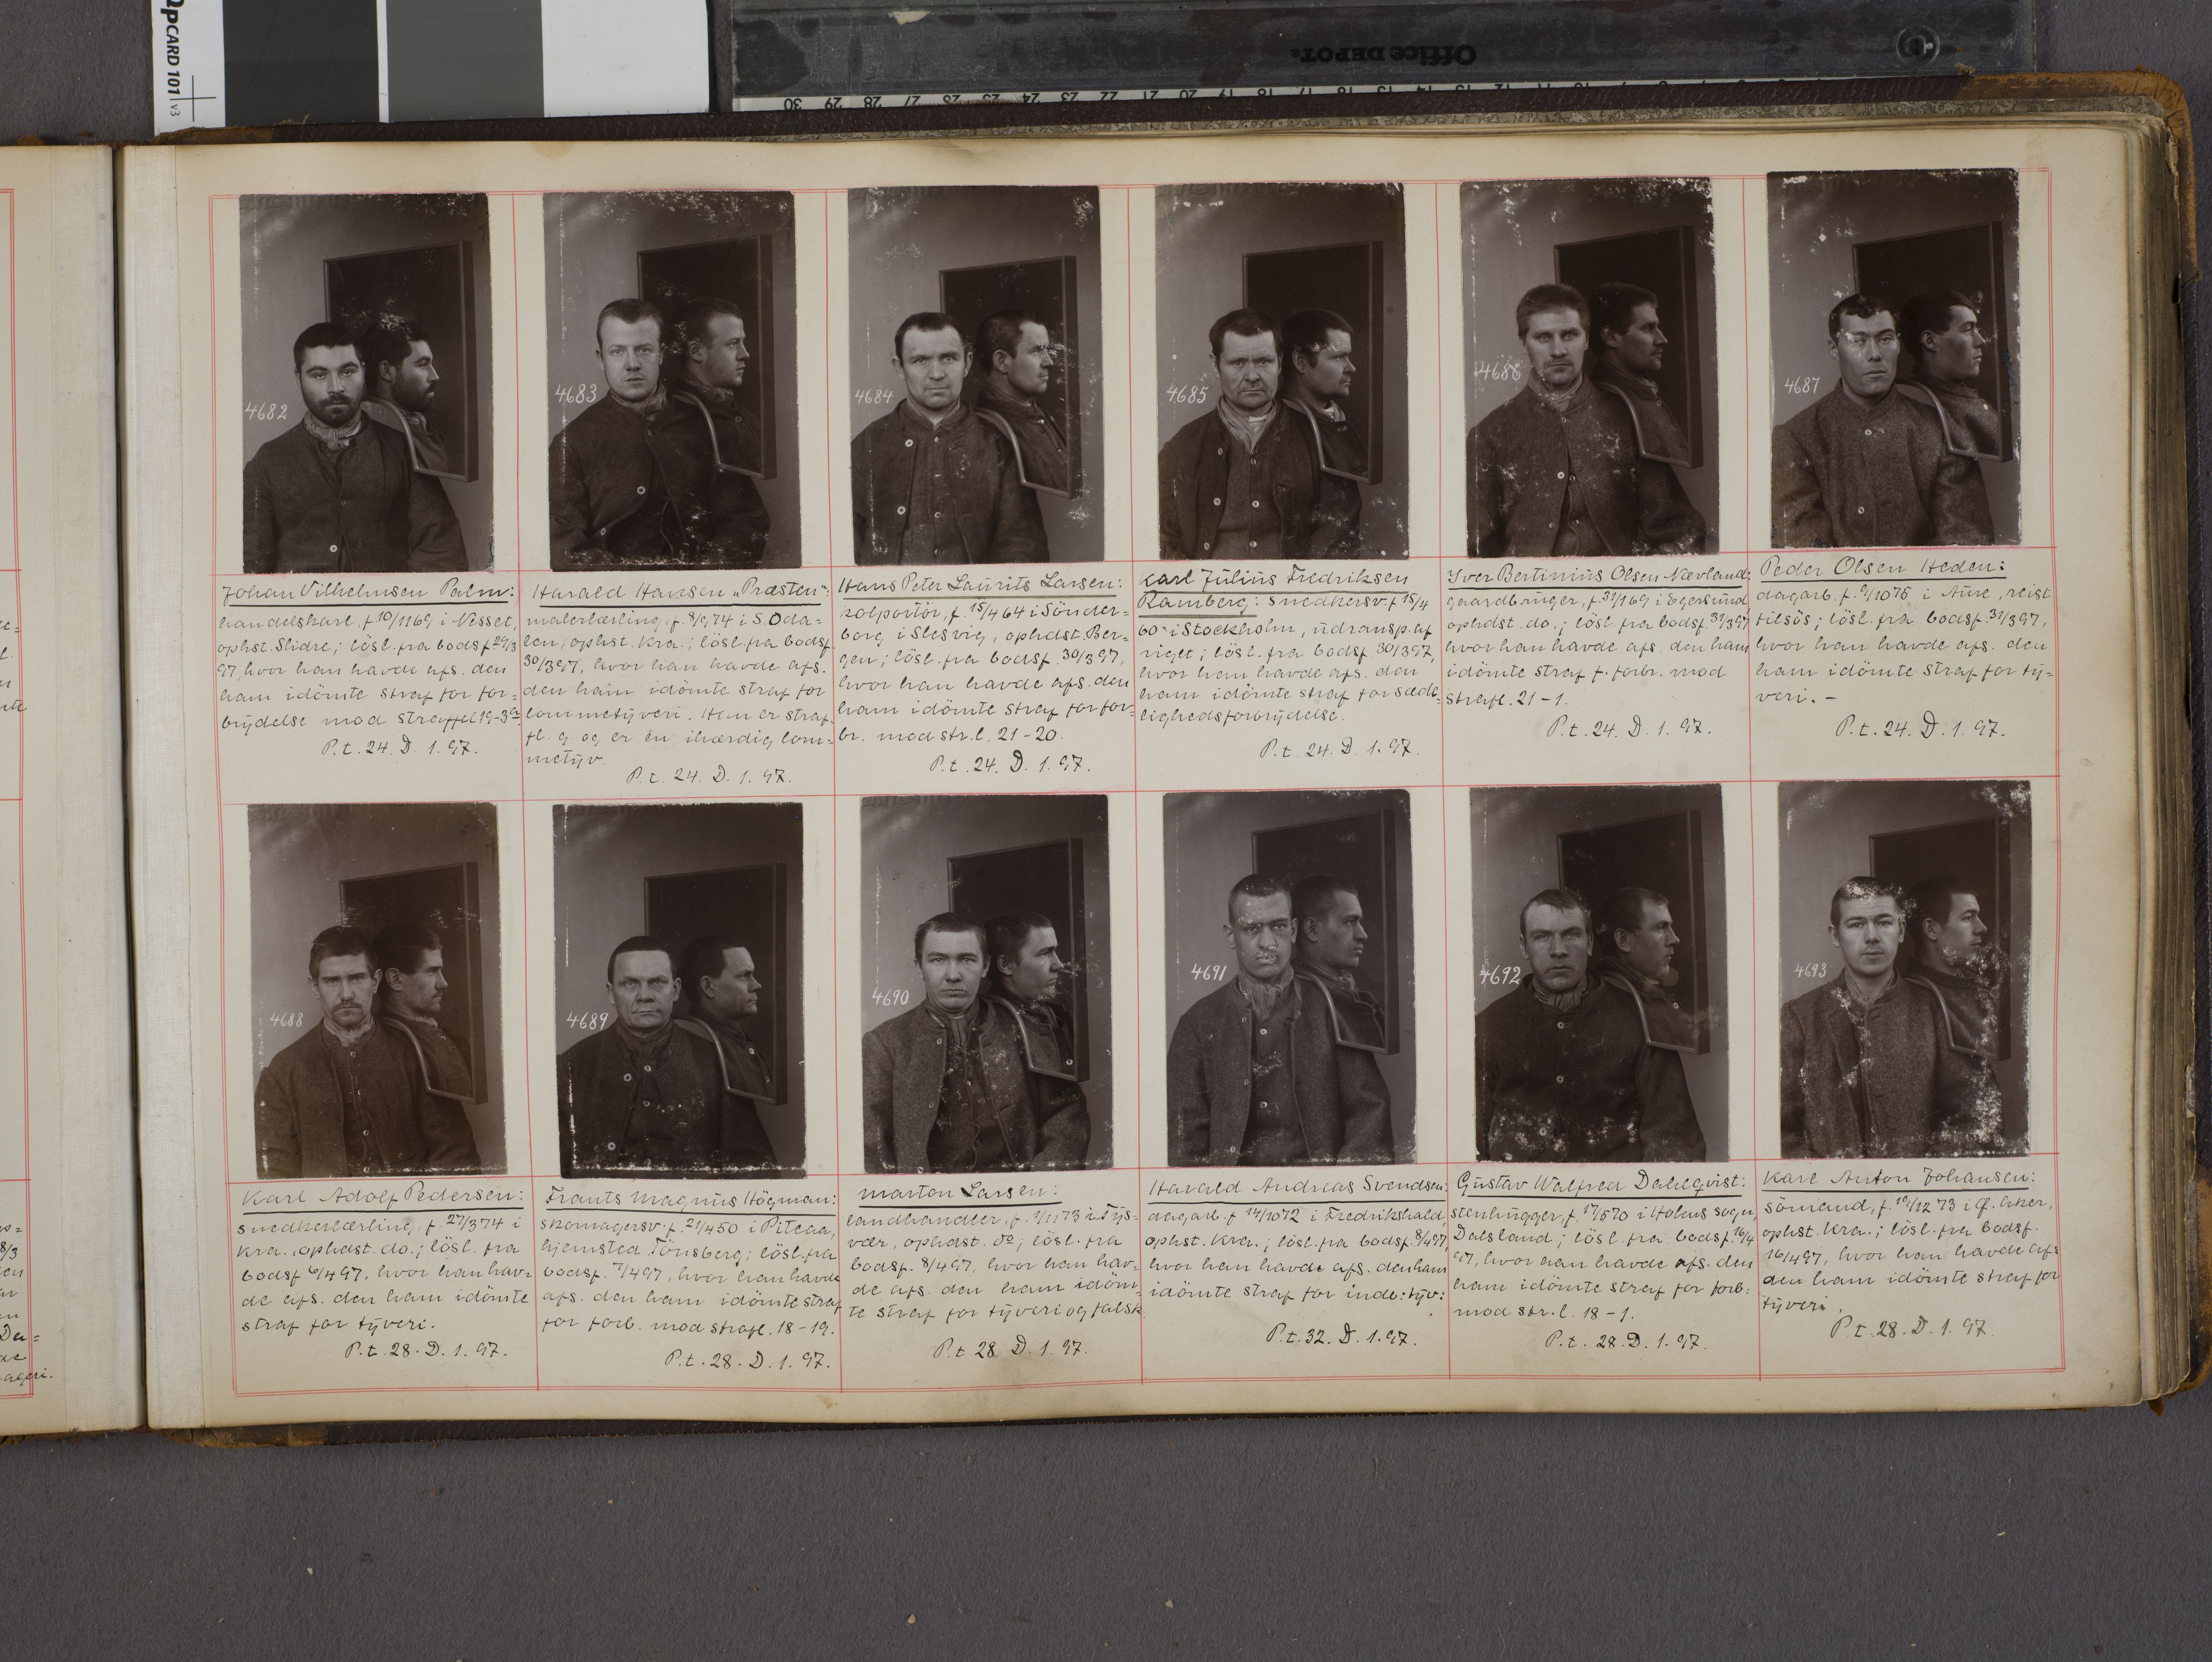 QPCARD 101 v3
Office DEPOT.
30 29 28 27 26 25 24 23 22 21 20 19 18 17 16 15 14 13 12 11 10 9 8 7 6
4682
Johan Vilhelmsen Palm:
handelskarl, f 10/11 69 i Nesset,
ophst. Slidre; lösl. fra bodsf 29/3
97, hvor han havde afs. den
ham idömte straf for for=
brydelse mod straffel 19-3
P.t. 24. D. 1. 97.
4683
Harald Hansen „Præsten":
malerlærling, f. 8/9 74 i S. Oda=
len, ophst. Kra.; lösl. fra bodsf
30/3 97, hvor han havde afs.
den ham idömte straf for
lommetyveri. Han er straf.
fl. g og er en ihærdig lom=
metyv.
P.t. 24. D. 1. 97.
4684
Hans Peter Laurits Larsen:
kolportör, f. 15/4 64 i Sönder=
borg i Slesvig, ophdst. Ber=
gen; lösl. fra bodsf. 30/3 97,
hvor han havde afs. den
ham idömte straf for for=
br. mod str. l. 21-20.
P.t. 24. D. 1. 97.
4685
Karl Julius Fredriksen
Ramberg: snedkersv. f 15/4
60 i Stockholm, udransp. af
riget; lösl. fra bodsf 30/3 97,
hvor han havde afs. den
ham idömte straf for sæde=
lighedsforbrydelse.
P.t. 24. D. 1. 97.
4686
Iver Bertinius Olsen Nævland:
gaardbruger, f. 31/1 69 i Egersund,
ophdst. do.; lösl. fra bodsf. 31/3 97
hvor han havde afs. den ham
idömte straf f. forbr. mod
strafl. 21-1.
P.t. 24. D. 1. 97.
4687
Peder Olsen Heden:
dagarb. f. 9/10 75 i Aure, reist
tilsös; lösl. fra bodsf. 31/3 97,
hvor han havde afs. den
ham idömte straf for ty=
veri. -
P.t. 24. D. 1. 97.
4688
Karl Adolf Pedersen:
snedkerlærling, f. 27/3 74 i
Kra. ophdst. do.; lösl. fra
bodsf 6/4 97, hvor han hav=
de afs. den ham idömte
straf for tyveri.
P.t. 28. D. 1. 97.
4689
Frants Magnus Högman:
skomagersv. f. 21/4 50 i Piteaa,
hjemsted Tönsberg; lösl. fra
bodsf. 7/4 97, hvor han havde
afs. den ham idömte straf
for forb. mod strafl. 18-19.
P.t. 28. D. 1. 97.
4690
Marton Larsen:
landhandler, f. 1/11 73 i Tys=
vær, ophdst. do; lösl. fra
bodsf. 8/4 97, hvor han hav=
de afs. den ham idöm=
te straf for tyveri og falsk
P.t. 28 D. 1. 97.
4691
Harald Andreas Svendsen:
dagarb. f 14/10 72 i Fredrikshald,
ophst. Kra.; lösl. fra bodsf. 8/4 97,
hvor han havde afs. den ham
idömte straf for indb: tyv:
P.t. 32. D. 1. 97.
4692
Gustav Walfred Dahlqvist:
stenhugger, f. 17/5 70 i Holms sogn,
Dalsland; lösl. fra bodsf. 16/4
97, hvor han havde afs. den
ham idömte straf for forb:
mod str. l. 18-1.
P.t. 28. D. 1. 97.
4693
Karl Anton Johansen:
sömand, f. 19/12 73 i Ø. Aker,
ophst. Kra.; lösl. fra bodsf.
16/4 97, hvor han havde afs
den ham idömte straf for
tyveri.
P.t. 28. D. 1. 97